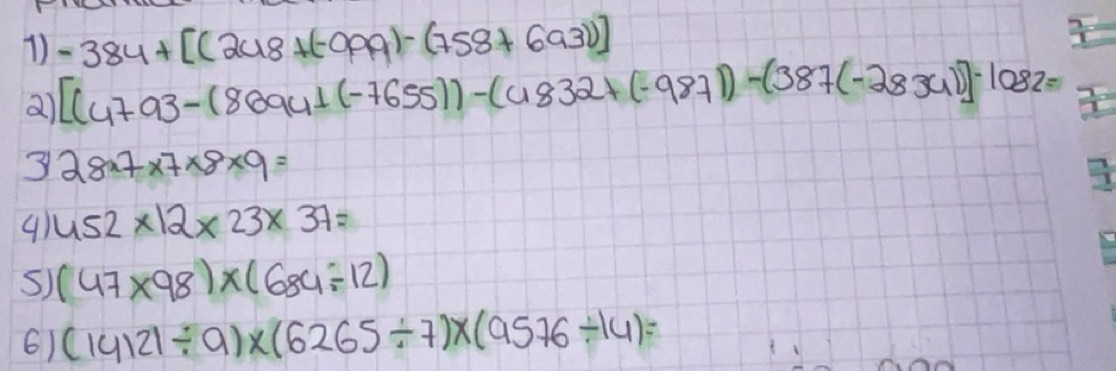 1) -384 + [(248 + (-999) - (758 + 693))]
2) [(4793 - (8694 + (-7655)) - (4832 + (-987)) - (387(-2834))] - 1082 =
3) 28 x 7 x 7 x 8 x 9 =
4) 452 x 12 x 23 x 37 =
5) (47 x 98) x (684 ÷ 12)
6) (14121 ÷ 9) x (6265 ÷ 7) x (9576 ÷ 14) =